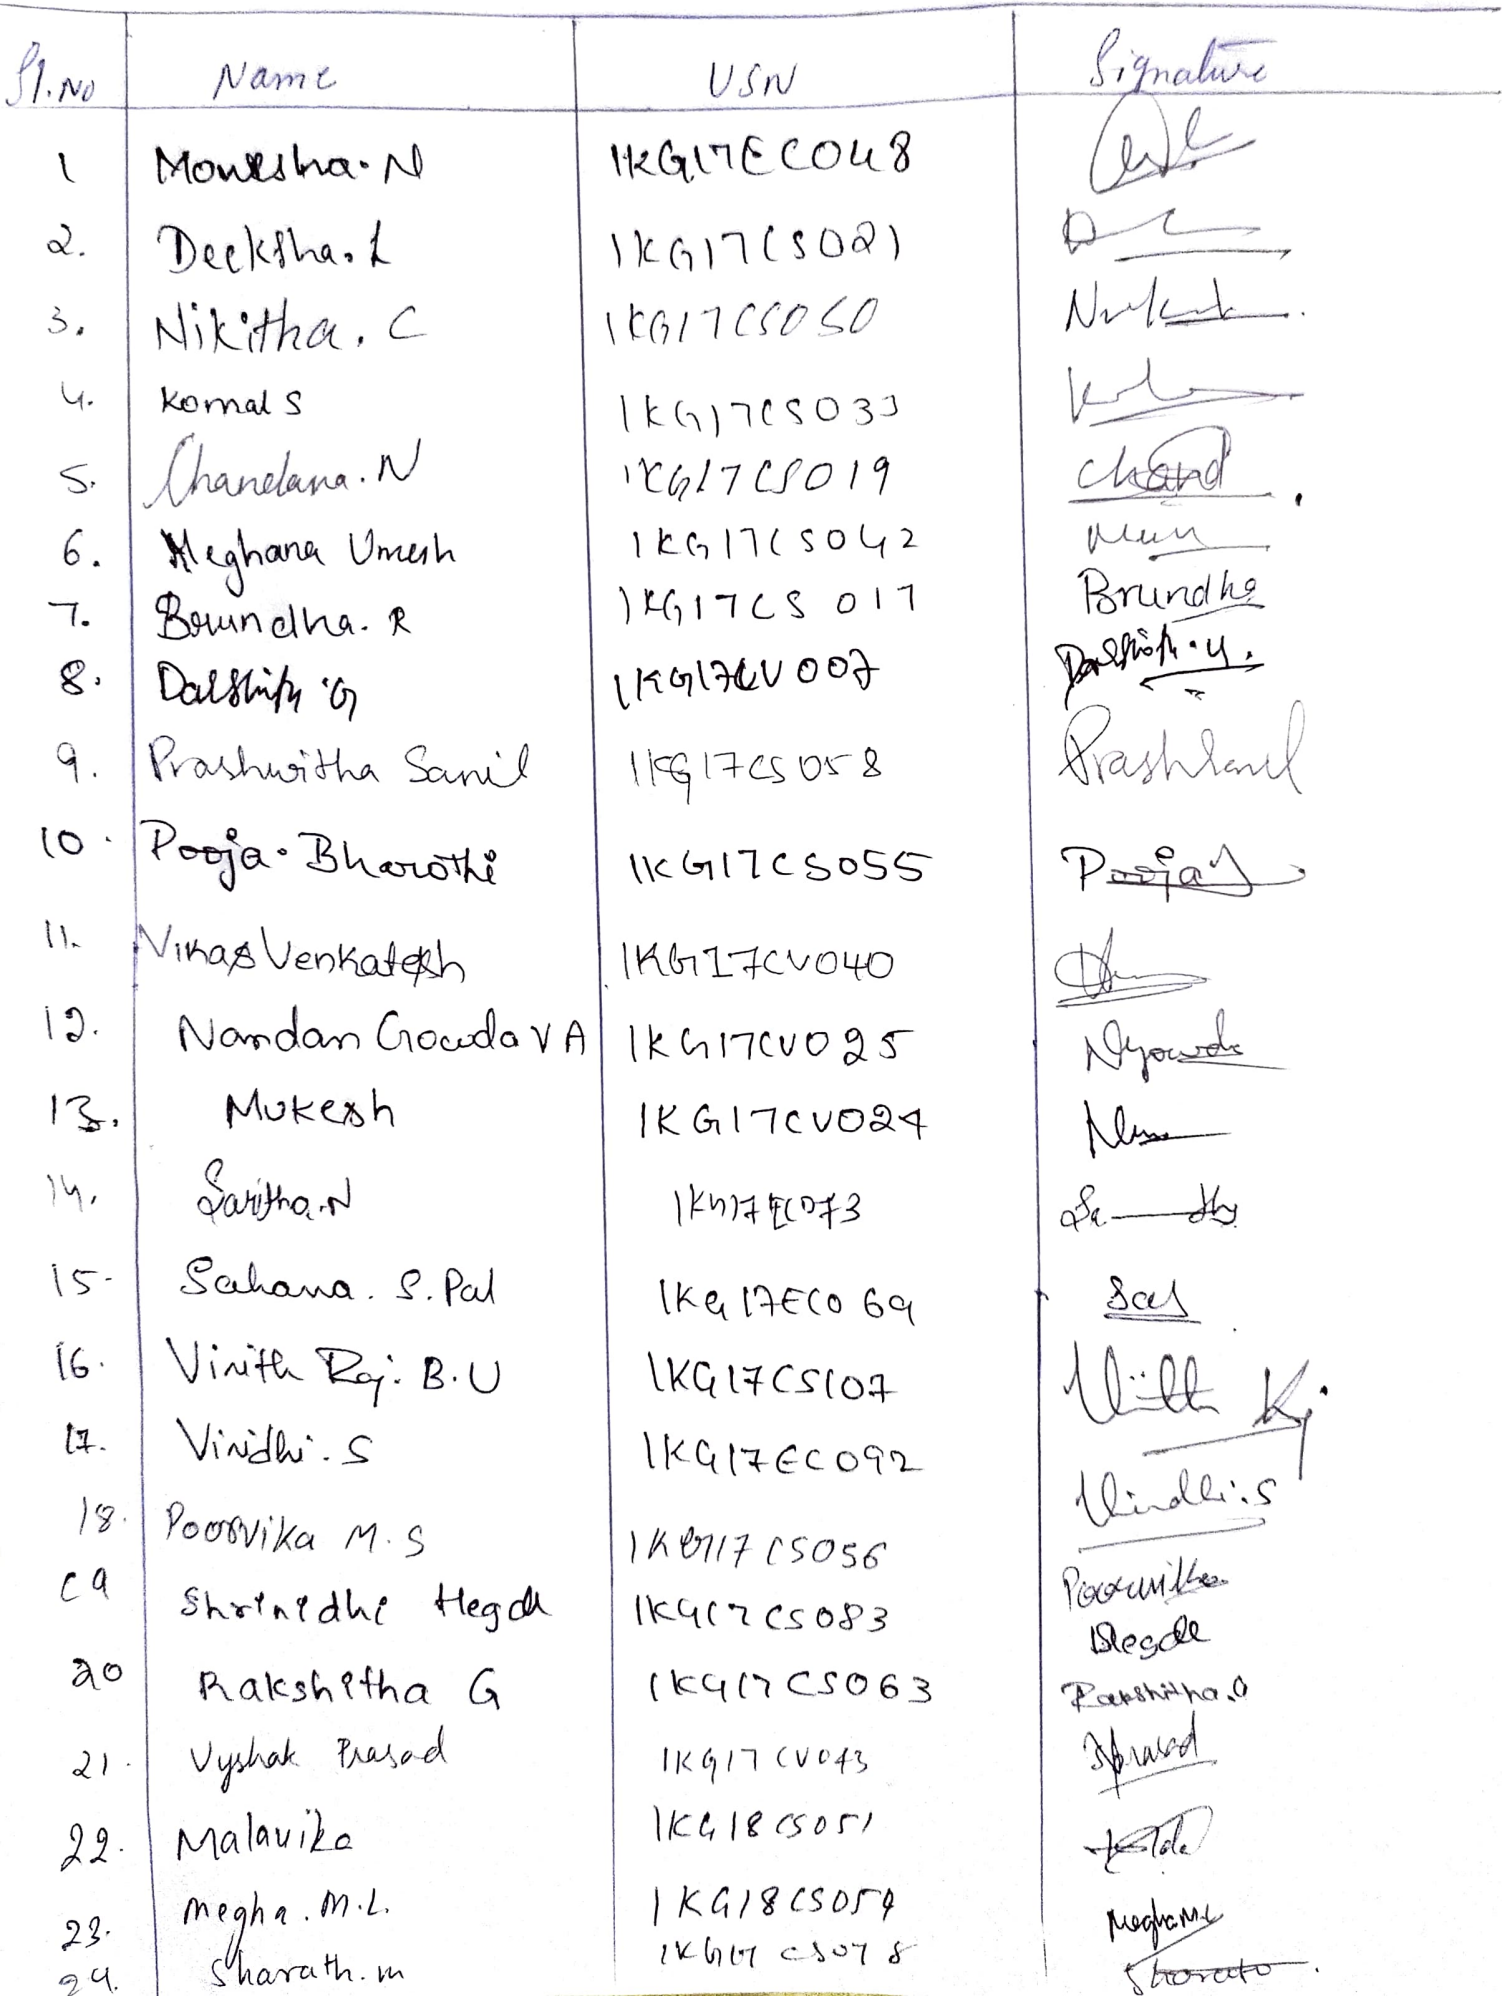 Sl.No Name USN Signature
1 Monesha.N 1KG17EC048
2. Deeksha.L 1KG17CS021
3. Nikitha.C 1KG17CS050
4. Komal S 1KG17CS033
5. Chandana.N 1KG17CS019 Chand
6. Meghana Umesh 1KG17CS042
7. Brundha.R 1KG17CS017 Brundha
8. Darshith G 1KG17CV007
9. Prashwitha Sanil 1KG17CS058
10. Pooja.Bharathi 1KG17CS055 Pooja
11. Vikas Venkatesh 1KG17CV040
12. Nandan Gowda V A 1KG17CV025 Ngowda
13. Mukesh 1KG17CV024
14. Saritha.N 1KG17EC073
15. Sahana. S. Pal 1KG17EC069
16. Vinith Raj. B.U 1KG17CS107
17. Vinidhi.S 1KG17EC092 Vindhi.S
18. Poorvika M.S 1KG17CS056 Poorvika
19 Shrinidhi Hegde 1KG17CS083 Hegde
20 Rakshitha G 1KG17CS063 Rakshitha.G
21. Vyshak Prasad 1KG17CV043 Prasad
22. Malavika 1KG18CS051
23. Megha.M.L. 1KG18CS054 Megha M.L
24. Sharath.m 1KG17CS078 Sharath